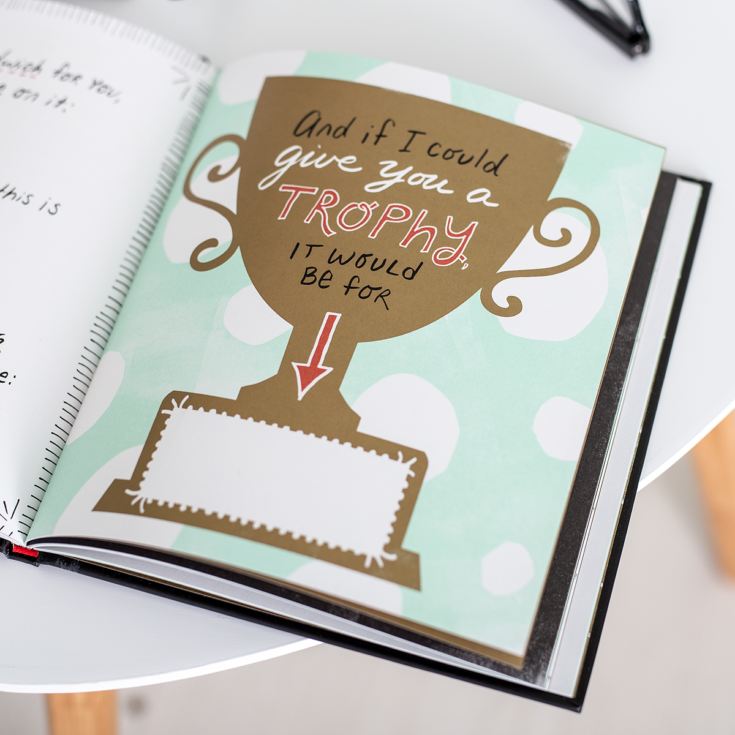 for you,
on it:
this is
And if I could
give you a
TROPHY,
IT WOULD
BE FOR